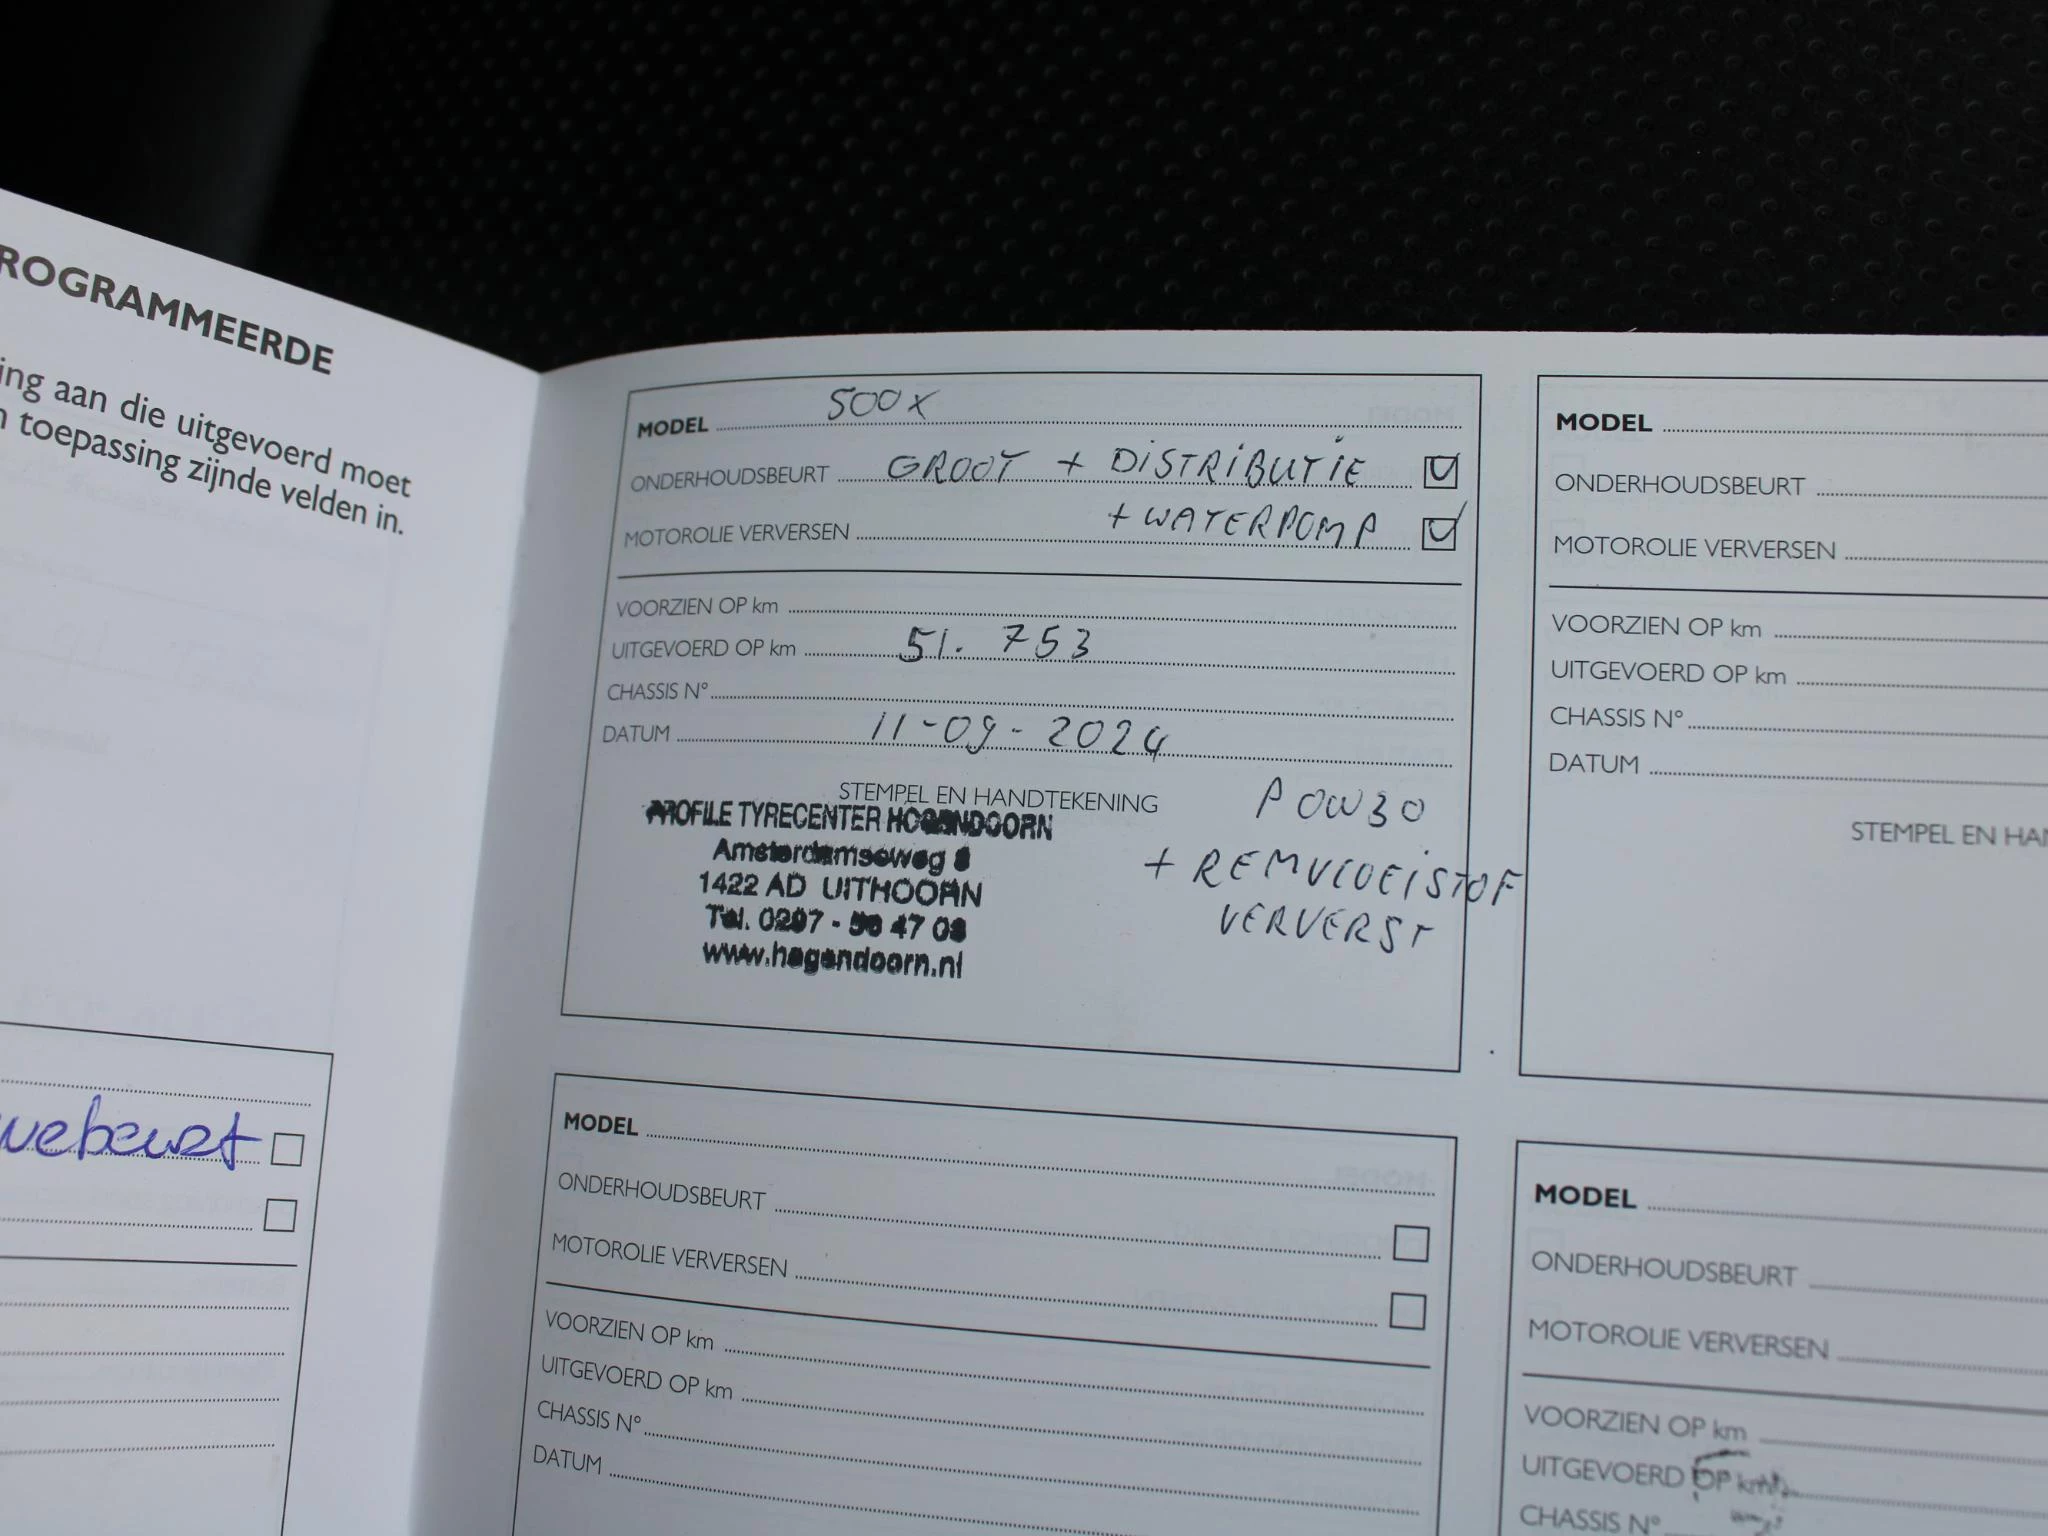 ROGRAMMEERDE
ing aan die uitgevoerd moet
n toepassing zijnde velden in.
MODEL 500X
ONDERHOUDSBEURT GROOT + DISTRIBUTIE
MOTOROLIE VERVERSEN + WATERPOMP
VOORZIEN OP km
UITGEVOERD OP km 51.753
CHASSIS N°
DATUM 11-09-2024
STEMPEL EN HANDTEKENING
PROFILE TYRECENTER HOGENDOORN
Amsterdamseweg
1422 AD UITHOORN
Tel. 0297 - 47 08
www.hogendoorn.nl
POW30
+ REMVLOEISTOF
VERVERST
MODEL
ONDERHOUDSBEURT
MOTOROLIE VERVERSEN
VOORZIEN OP km
UITGEVOERD OP km
CHASSIS N°
DATUM
STEMPEL EN HAN
MODEL
ONDERHOUDSBEURT
MOTOROLIE VERVERSEN
VOORZIEN OP km
UITGEVOERD OP km
CHASSIS N°
DATUM
MODEL
ONDERHOUDSBEURT
MOTOROLIE VERVERSEN
VOORZIEN OP km
UITGEVOERD OP km
CHASSIS N°